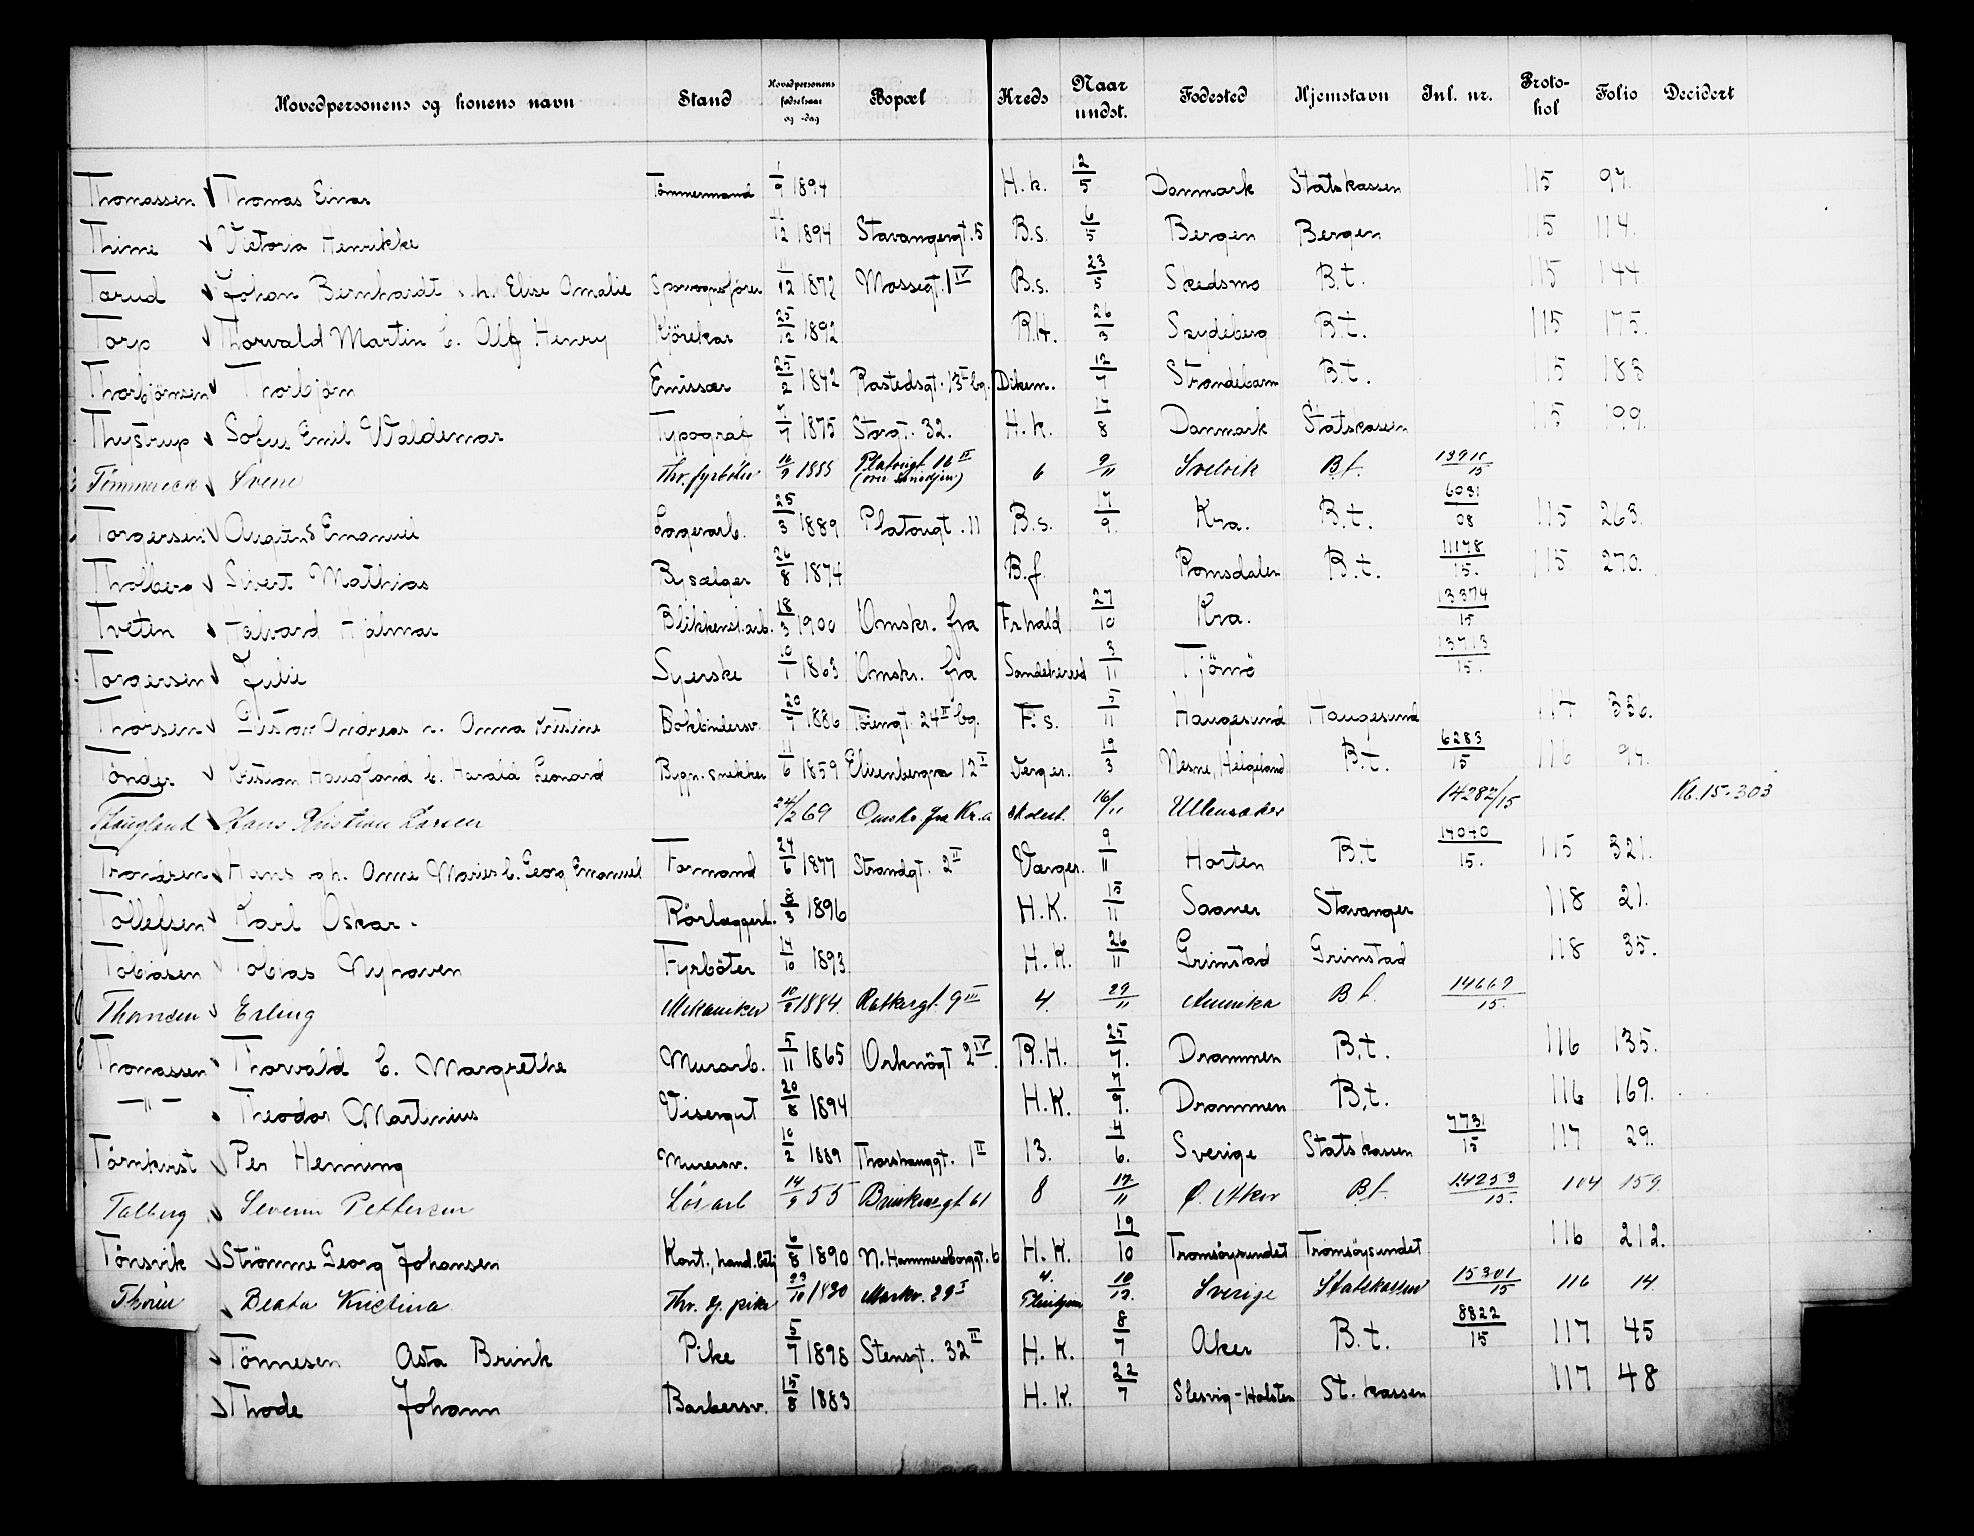 Hovedpersonens og konens navn Stand Hovedpersonens fødselsaar og -dag Bopæl Kreds Naar undst. Fødested Hjemstavn Inl. nr. Protokol Folio Decidert
Thomassen Thomas Einar Tømmermand 1/9 1894 H.k. 12/5 Danmark Statskassen 115 97.
Thime Victoria Henrikke 11/12 1894 Stavangergt. 5 B.s. 6/5 Bergen Bergen 115 114.
Tærud Johan Bernhardt s.h. Elise Amalie Sporvognsfører 11/12 1872 Mossegt. 1 IV B.s. 23/5 Skedsmo B.t. 115 144
Torp Thorvald Martin b. Alf Henry Kjørekar 25/12 1892 R.H. 26/3 Spydeberg B.t. 115 175.
Thorbjørnsen Thorbjørn Emissær 25/2 1842 Rostedsgt. 13 I bg. Dikem. 12/7 Strandebarm B.t. 115 183
Thystrup Sofus Emil Waldemar Typograf 7/7 1875 Storgt. 32. H.k. 17/8 Danmark Statskassen 115 199.
Tømmereek Svene Thv. fyrbøter 16/9 1855 Platougt 16 II 6 9/11 Svelvik B.t. 13910/15
Torgersen August Emanuel Lagerarb. 25/3 1889 Platougt. 11 B.s. 17/9. Kra. B.t. 6081/08 115 263.
Tholberg Sivert Mathias Bysælger 26/8 1874 B.f. Romsdalen B.t. 11178/15. 115 270.
Tveten Halvard Hjalmar Blikkensl.arb. 18/3 1900 Omskr. fra Frhald 27/10 Kra. 13374/15
Torgersen Julie Syerske 10/1 1863 Omskr. fra Sandeherred 3/11 Tjømø 13713/15.
Thorsen Gustav Andreas o. Anna Kristine Bokbindersv. 20/7 1886 Tøiengt. 24 II bg. F.s. 5/11 Haugesund Haugesund 117 336.
Tønder Kristian Haugland b. Harald Leonard Bygn.snekker 11/6 1859 Ekenbergva 12 I Verger. 19/3 Nesne, Helgeland B.t. 6283/15 116 97.
Thaugland Hans Kristian Larsen 24/2 69 Omskr. fra Kr.a Skolest. 16/11 Ullensaker 14282/15 Kb. 15-303
Trondsen Hans gh. Anne Marie b. Georg Emanuel Formand 24/6 1877 Strandgt. 2 II Værger. 9/11 Horten B.t 14040/15. 115 321.
Tollefsen Karl Oskar. Rørlæggerl. 8/3 1896 H.K. 15/11 Saaner Stavanger 118 21.
Tobiasen Tobias Nyhaven Fyrbøter 14/10 1893 H.K. 26/11 Grimstad Grimstad 118 35.
Thoresen Erling Mekaniker 10/8 1884. Ratkesgt. 9 III 4. 29/11 Amerika B t. 14669/15.
Thomassen Thorvald b. Margrethe Murarb. 5/11 1865 Orknøgt 2 IV. R.H. 25/7. Drammen B.t. 116 135.
—"— Theodor Martinius Visergut 20/8 1894 H.K. 7/9. Drammen B.t. 116 169.
Tørnkvist Per Henning Murersv. 10/2 1889 Thorshauggt. 1 II 13. 4/6. Sverige Statskassen 7731/15 117 29.
Talberg Severin Pettersen Løsarb 14/9 55 Brinkensgt. 61 8 12/11 Ø. Aker B.t. 14253/15. 104 159.
Tønsvik Strømme Georg Johansen Kont., hand.betj 6/8 1890 N. Hammersborggt. 6 H.K. 19/10 Tromsøysundet Tromsøysundet 116 212.
Thorin Beata Kristina Thv. tj. pike 23/10 1890 Markv. 29 I 4. 10/12. Sverige Statskassen 15301/15 116 14.
Tønnesen Asta Brink Pike 5/7 1898 Stensgt. 32 II H.K. 8/7 Aker B.t. 8822/15 117 45
Thode Johann Barbersv. 15/8 1883 H.K. 22/7 Slesvig-Holsten St. kassen 117 48